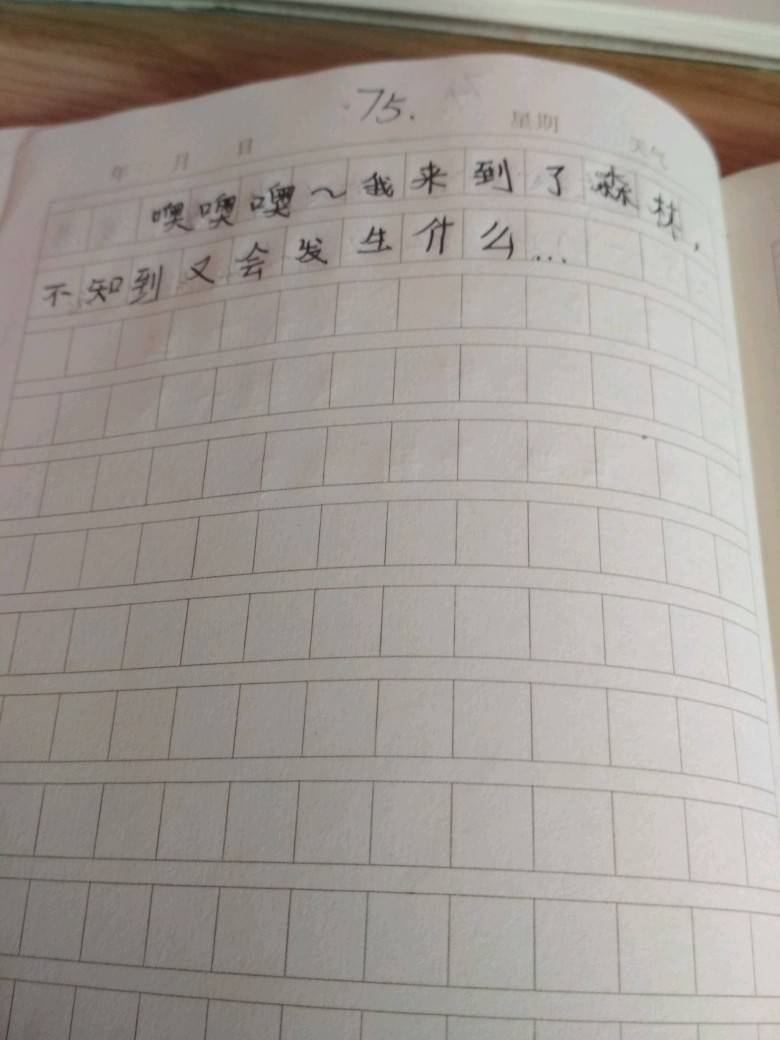 75.
年 月 日 星期 天气
噢噢噢～我来到了森林,
不知到又会发生什么...